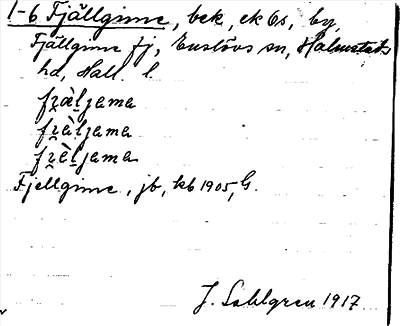 1-6 Fjällgime, bek, ek 6s, by,
Fjällgime fj, Enslövs sn, Halmstads
hd, Hall. l
fʒæljama
fʒàljama
fʒèljama
Fjellgime, jb, kb 1905, G.
J. Sahlgren 1917